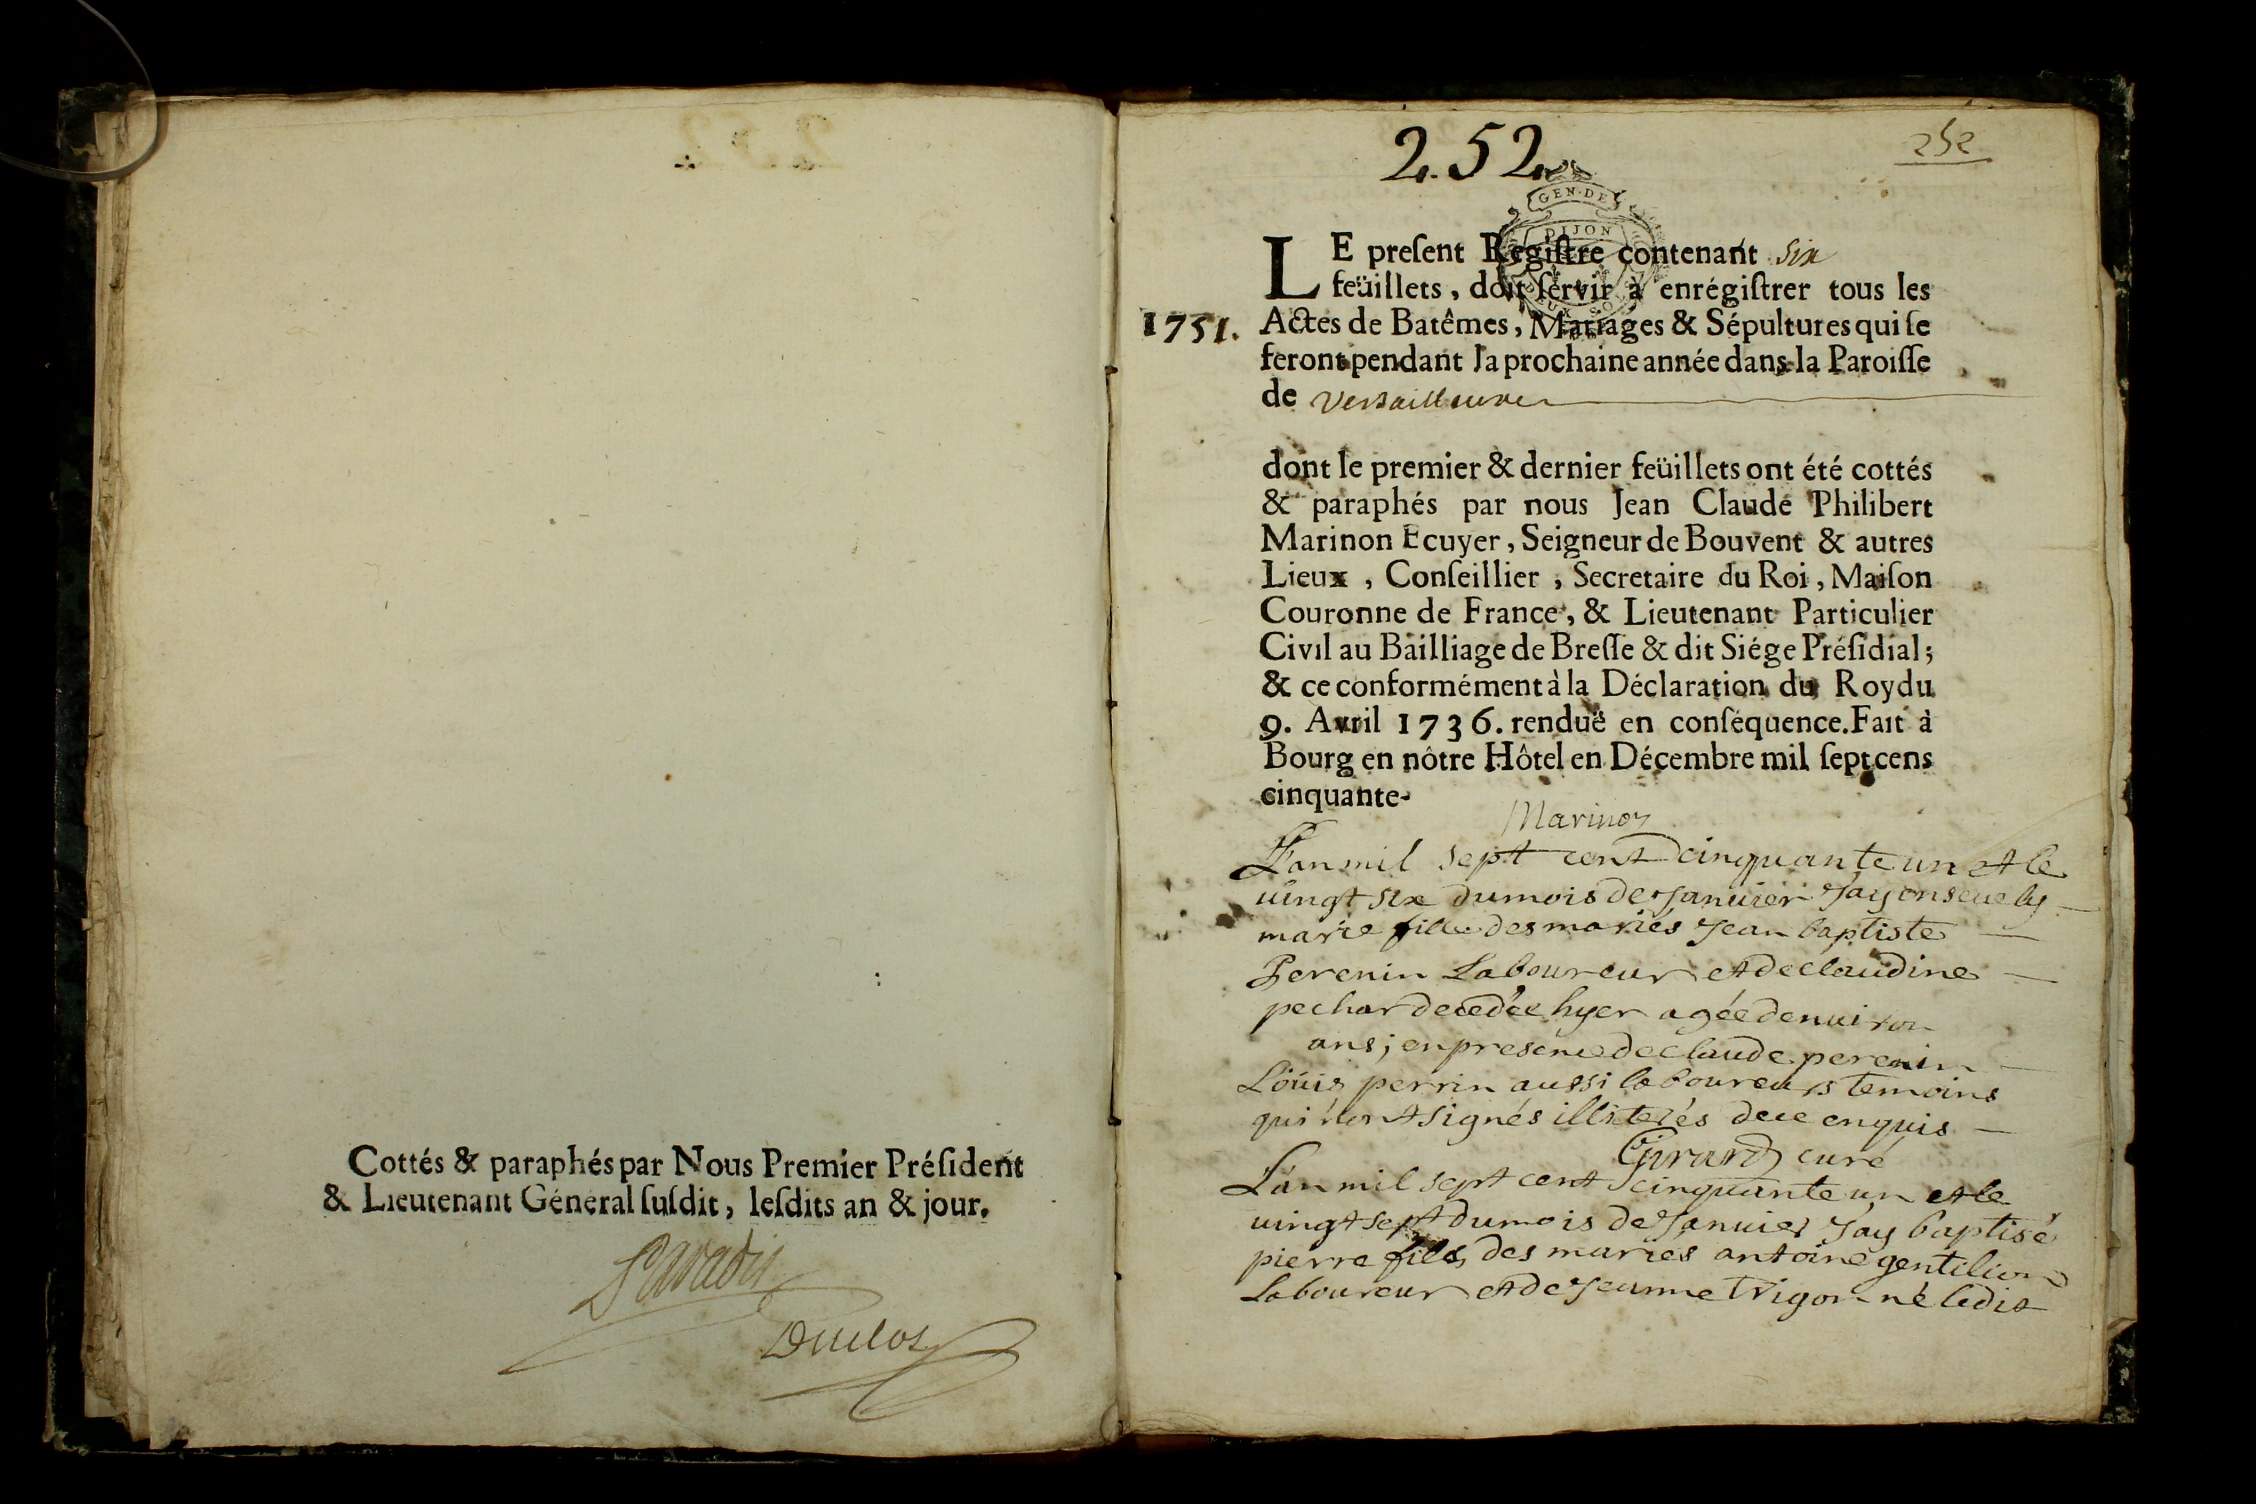 Cottés & paraphés par Nous Premier Présiden̈t
& Lieutenant Général ſuſdit, leſdits an & jour.
Duclos
2.52
252
GEN·DE
DIJON
LE preſent Regiſtre contenant six
feüillets, doit ſervir à enrégiſtrer tous les
1751.
Actes de Batêmes, Mariages & Sépultures qui ſe
feront pendant la prochaine année dans la Paroiſſe
de Versailleux
dont le premier & dernier feüillets ont été cottés
& paraphés par nous Jean Claude Philibert
Marinon Ecuyer, Seigneur de Bouvent & autres
Lieux, Conſeillier, Secretaire du Roi, Maiſon
Couronne de France, & Lieutenant Particulier
Civil au Bailliage de Breſſe & dit Siége Préſidial;
& ce conformément à la Déclaration du Roy du
9. Avril 1736. renduë en conſéquence. Fait à
Bourg en nôtre Hôtel en Décembre mil ſept cens
cinquante.
Marinon
L'an mil sept cent cinquante un et le
vingt six du mois de Janvier J'ay ensevely
marie fille des mariés Jean baptiste
Perenin Laboureur et de claudine
pechar decedée hyer agée denviron
ans; en presence de claude perenin
Loüis perrin aussi laboureurs temoins
qui n'ont signés illiterés de ce enquis
Girard curé
L'an mil sept cent cinquante un et le
vingt sept du mois de Janvier J'ay baptisé
pierre fils des mariés antoine gentilion
Laboureur et de Jeanne Trigon né ledit